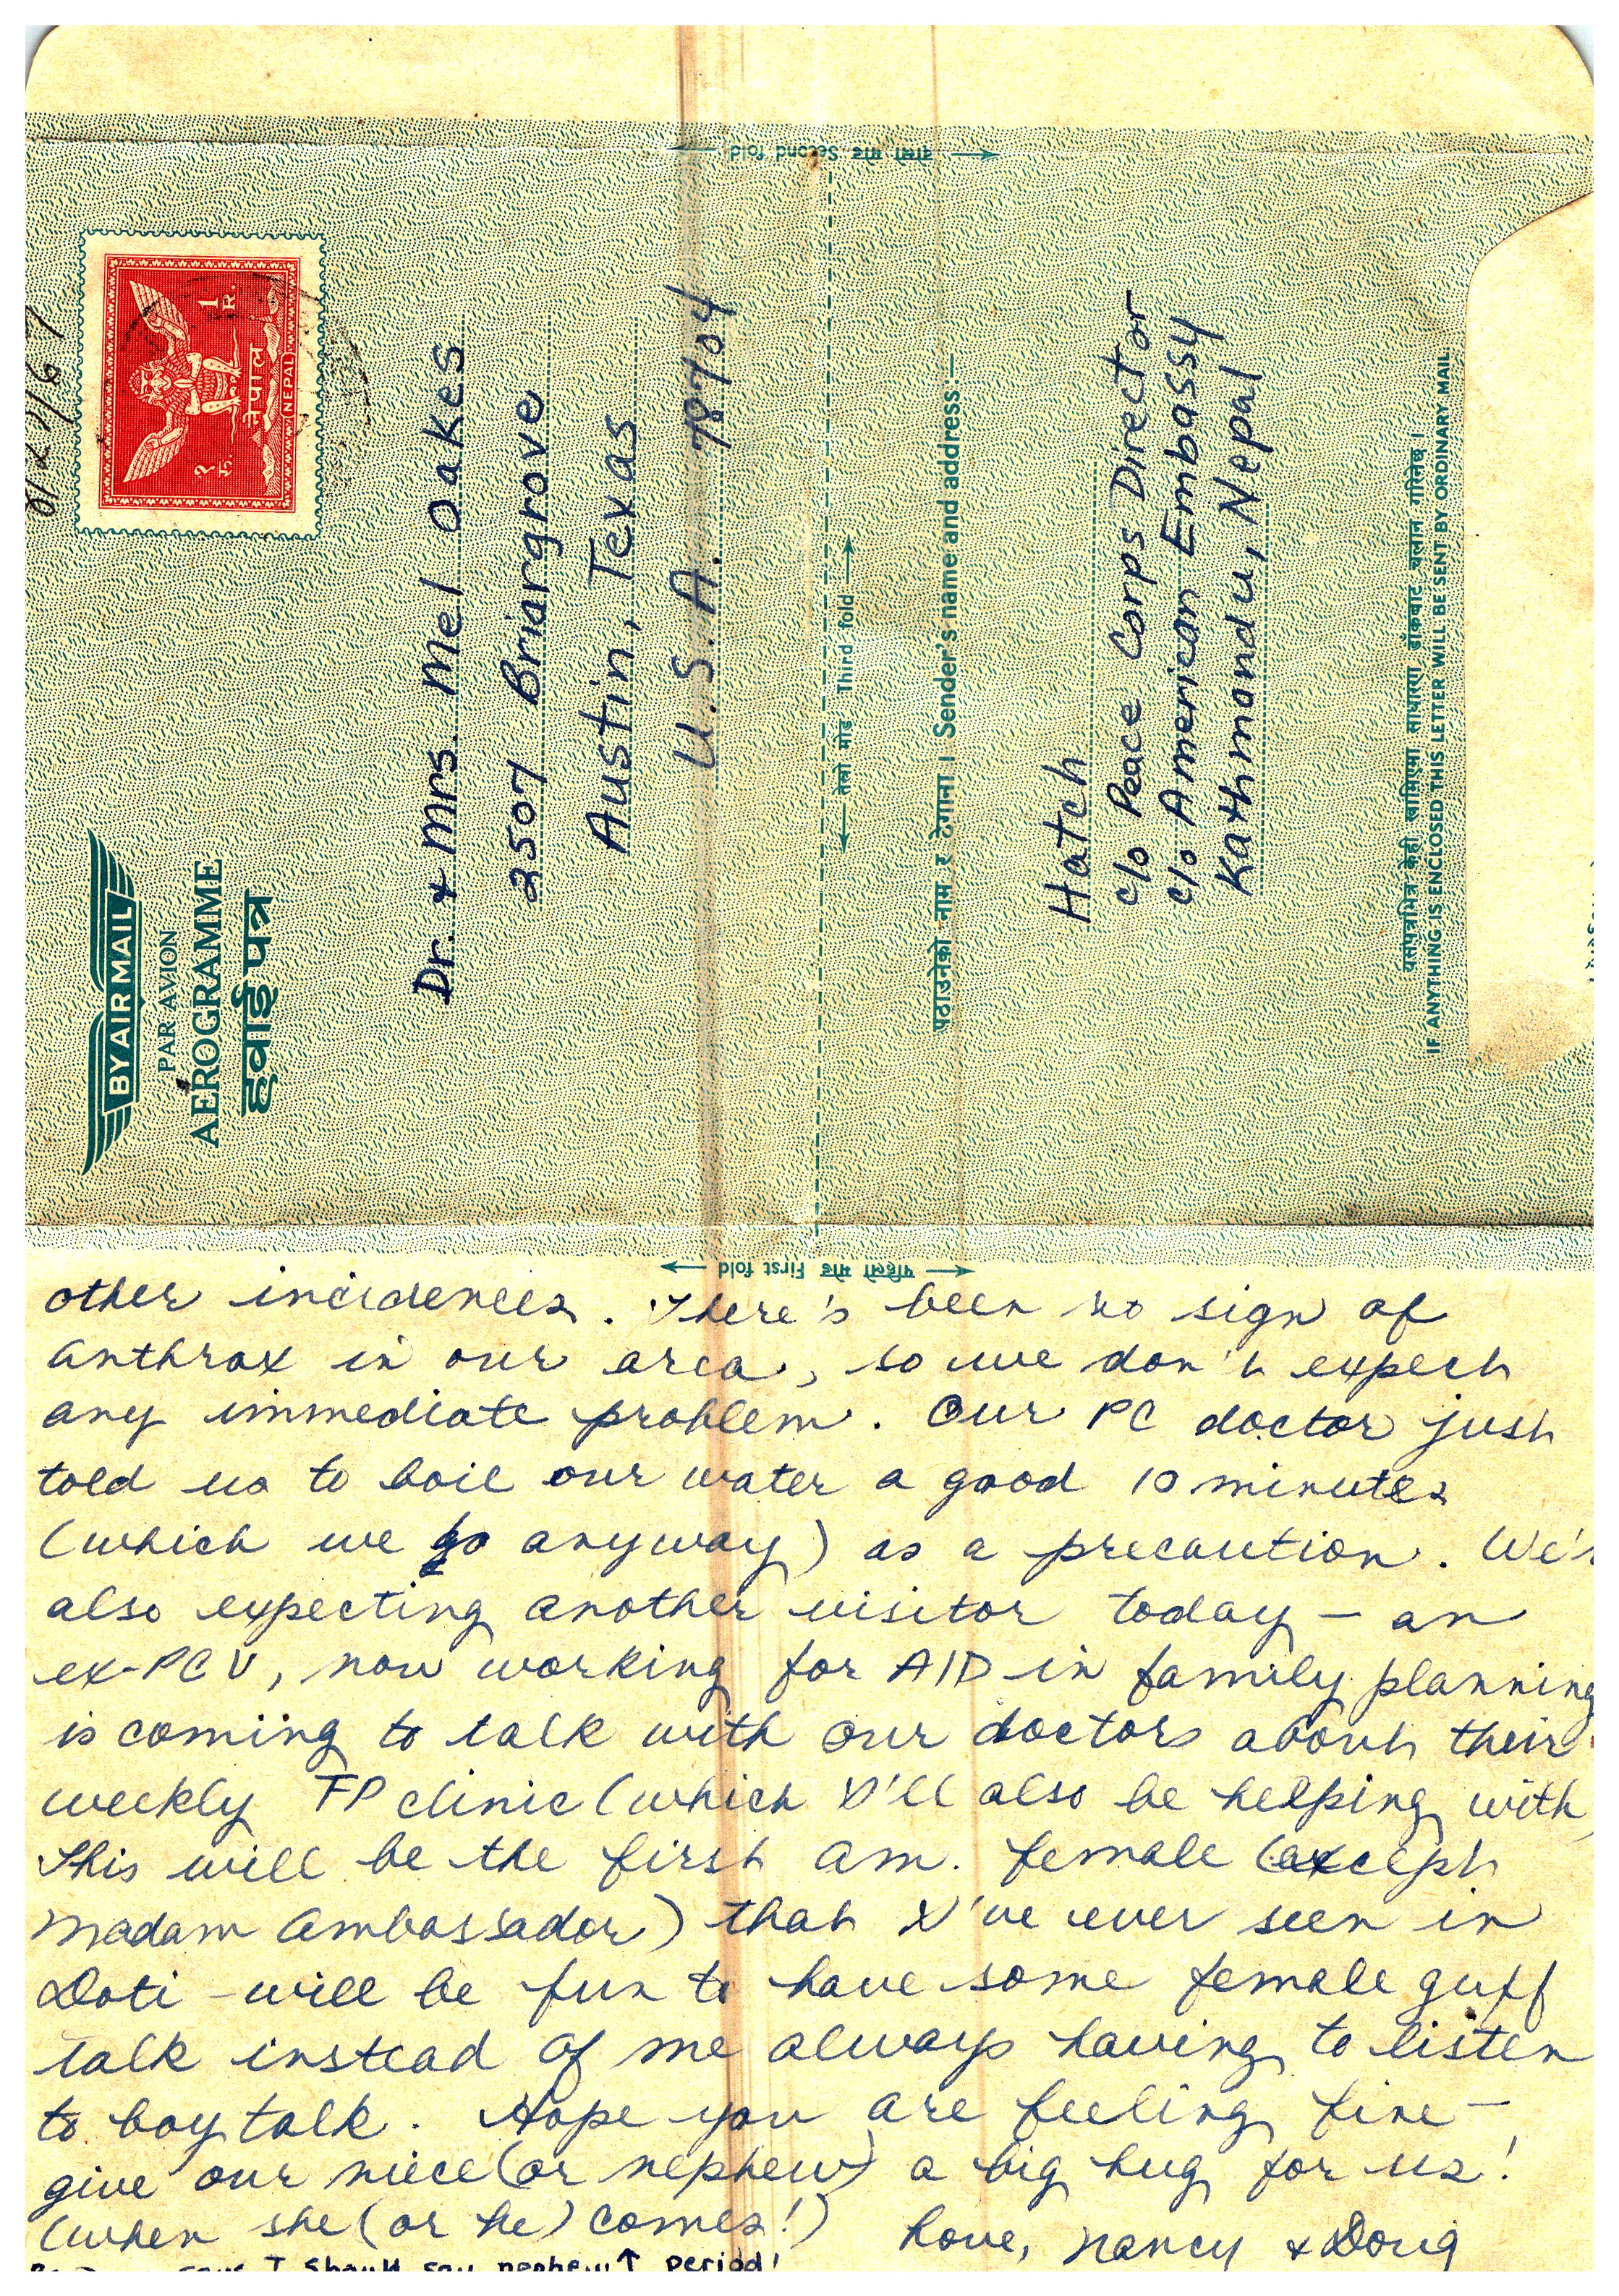 8/27/67
१ रु.
1 R.
नेपाल
NEPAL
BY AIR MAIL
PAR AVION
AEROGRAMME
हवाई पत्र
Dr. & Mrs. Mel Oakes
2507 Briargrove
Austin, Texas
U.S.A. 78704
दोस्रो मोड Second fold
तेस्रो मोड Third fold
पठाउनेको नाम र ठेगाना । Sender's name and address:—
Hatch
c/o Peace Corps Director
c/o American Embassy
Kathmandu, Nepal
यसपत्रभित्र केही साधारण डाँकबाट चलान गरिनेछ ।
IF ANYTHING IS ENCLOSED THIS LETTER WILL BE SENT BY ORDINARY MAIL.
पहिलो मोड First fold
other incidences. There's been no sign of
anthrax in our area, so we don't expect
any immediate problem. Our PC doctor just
told us to boil our water a good 10 minutes
(which we do anyway) as a precaution. We'r
also expecting another visitor today – an
ex-PCV, now working for AID in family planning
is coming to talk with our doctors about their
weekly FP clinic (which I'll also be helping with)
This will be the first Am. female (except
Madam Ambassador) that I've ever seen in
Doti – will be fun to have some female guff
talk instead of me always having to listen
to boy talk. Hope you are feeling fine –
give our niece (or nephew) a big hug for us!
(when she (or he) comes!) Love, Nancy & Doug
says I should say nephew ↑ period!